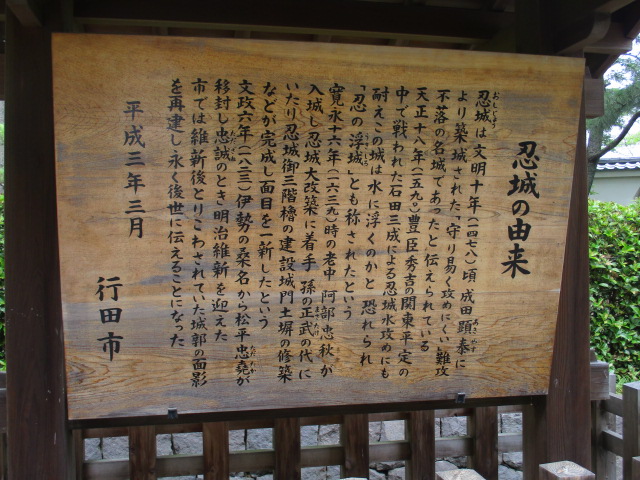 忍城の由来
忍城は文明十年(一四七八)頃 成田顕泰に
より築城された「守り易く攻めにくい難攻
不落の名城」であったと伝えられている
天正十八年(一五九〇)豊臣秀吉の関東平定の
中で戦われた石田三成による忍城水攻めにも
耐えこの城は水に浮くのかと 恐れられ
「忍の浮城」とも称されたという
寛永十六年(一六三九)時の老中 阿部忠秋が
入城し忍城大改築に着手 孫の正武の代に
いたり忍城御三階櫓の建設城門土塀の修築
などが完成し面目を一新したという
文政六年(一八二三)伊勢の桑名から松平忠堯が
移封し忠誠のとき明治維新を迎えた
市では維新後とりこわされていた城郭の面影
を再建し永く後世に伝えることになった
平成三年三月
行田市